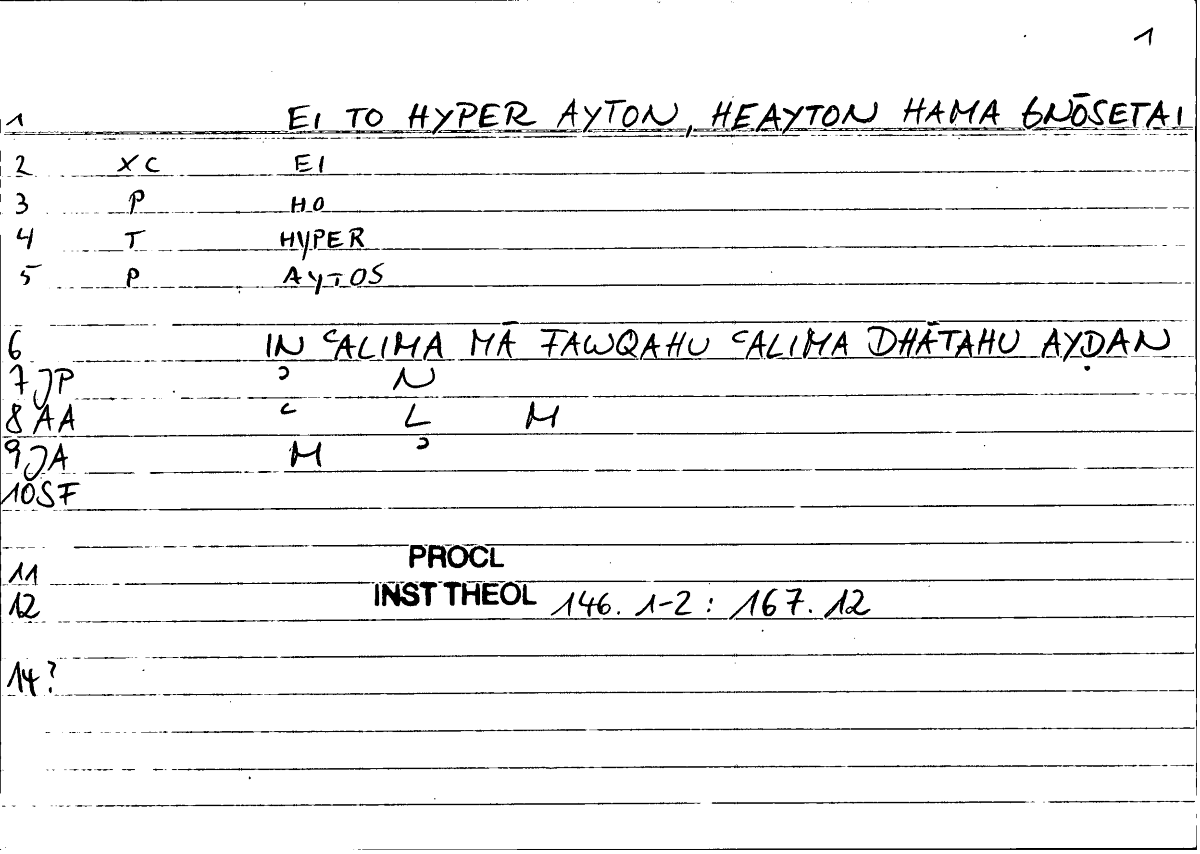 1
1 EI TO HYPER AYTON, HEAYTON HAMA GNŌSETAI
2 XC EI
3 P HO
4 T HYPER
5 P AYTOS
6 IN ʿALIMA MĀ FAWQAHU ʿALIMA DHĀTAHU AYḌAN
7 JP ʾ N
8 AA ʿ L M
9 JA M ʾ
10 SF
11 PROCL
12 INST THEOL 146. 1-2 : 167. 12
14?